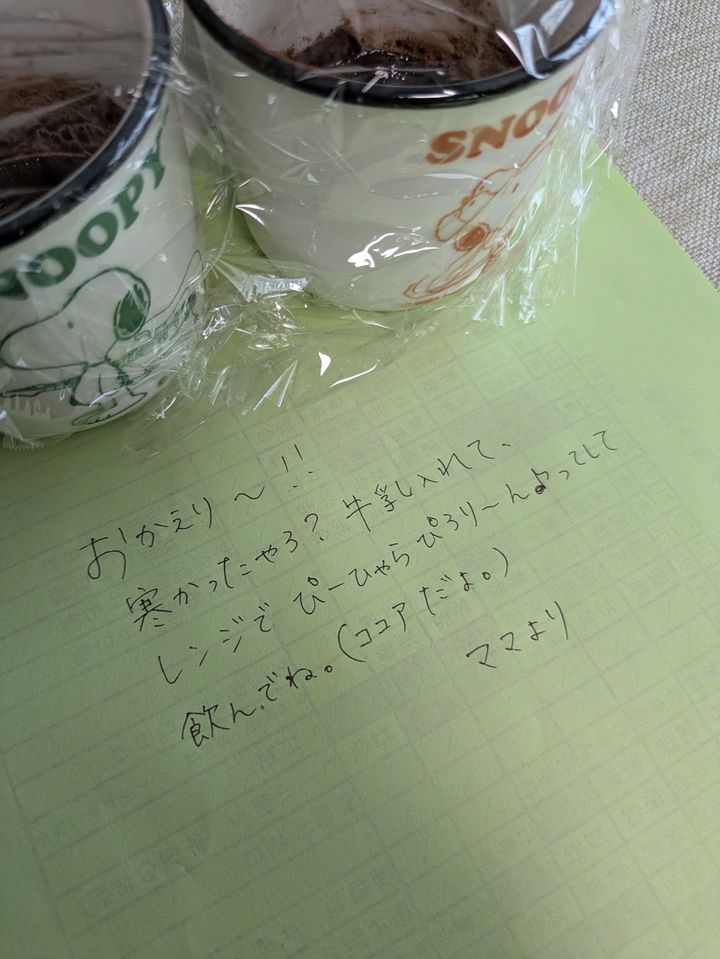 SNOOPY
SNOO
おかえり〜!!
寒かったやろ?牛乳入れて、
レンジで ぴーひゃらぴろり〜ん♪ってして
飲んでね。(ココアだよ。)
ママより